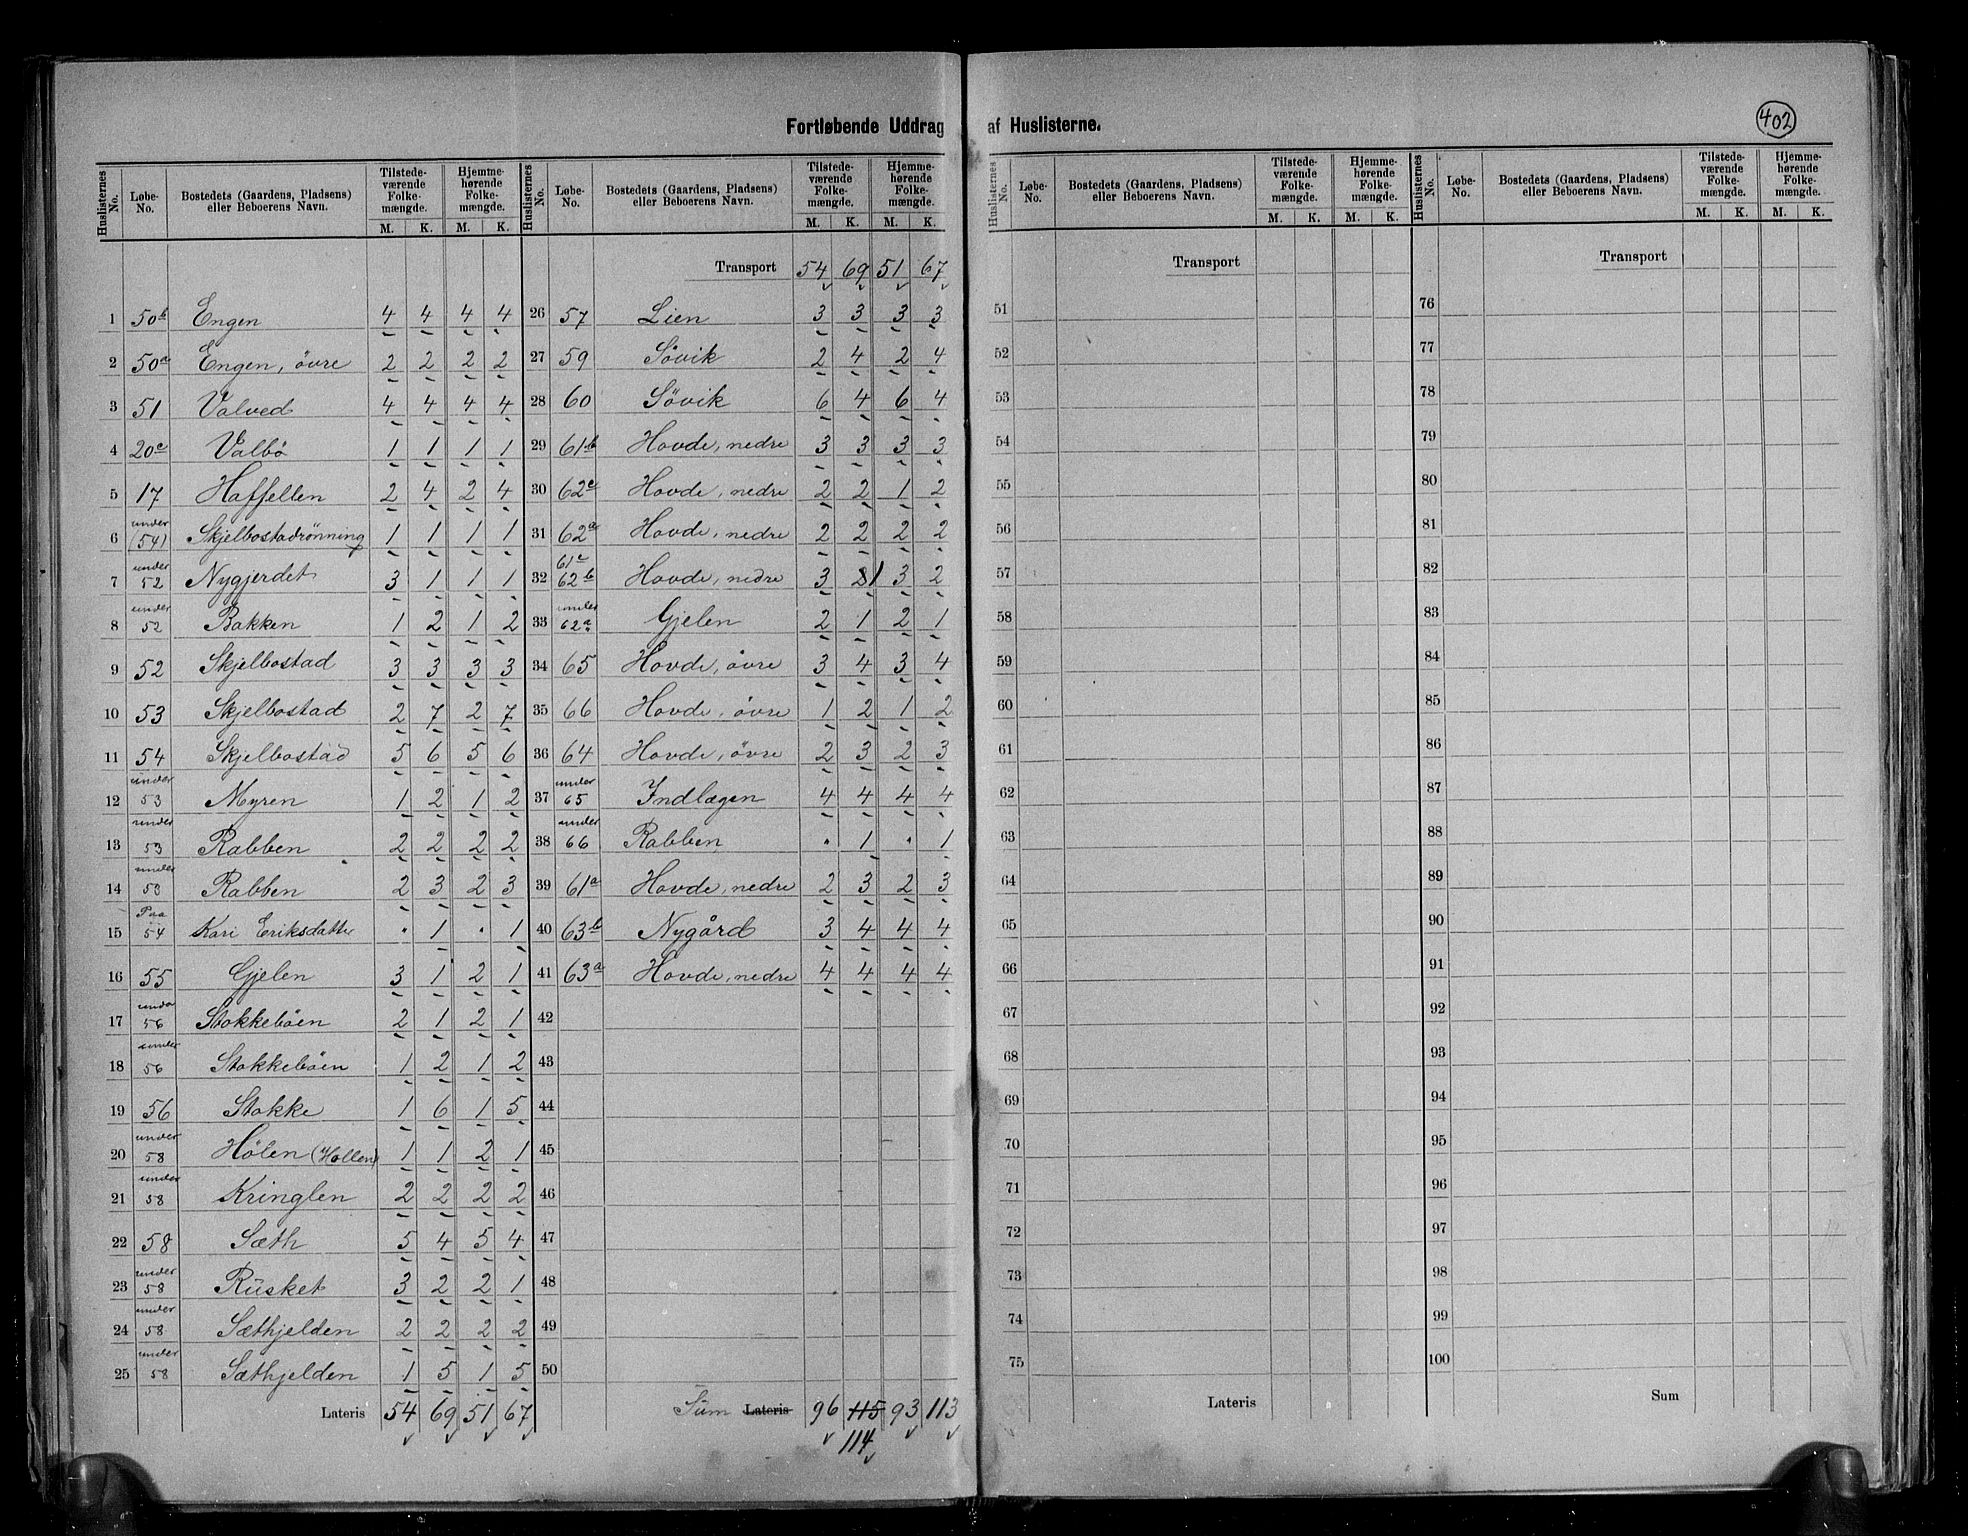 Fortløbende Uddrag af Huslisterne.
402
Huslisternes No. | Løbe-No. | Bostedets (Gaardens, Pladsens) eller Beboerens Navn. | Tilstedeværende Folkemængde. M. K. | Hjemmehørende Folkemængde. M. K.
1 50b Engen 4 4 4 4
2 50a Engen, övre 2 2 2 2
3 51 Valved 4 4 4 4
4 20c Valbö 1 1 1 1
5 17 Haffellen 2 4 2 4
6 under (54) Skjelbostadrönning 1 1 1 1
7 under 52 Nygjerdet 3 1 1 1
8 under 52 Bakken 1 2 1 2
9 52 Skjelbostad 3 3 3 3
10 53 Skjelbostad 2 7 2 7
11 54 Skjelbostad 5 6 5 6
12 under 53 Myren 1 2 1 2
13 under 53 Rabben 2 2 2 2
14 under 53 Rabben 2 3 2 3
15 Paa 54 Kari Eriksdatter . 1 . 1
16 55 Gjelen 3 1 2 1
17 under 56 Stokkeböen 2 1 2 1
18 under 56 Stokkeböen 1 2 1 2
19 56 Stokke 1 6 1 5
20 under 58 Hölen (Hollen) 1 1 2 1
21 under 58 Kringlen 2 2 2 2
22 58 Sæth 5 4 5 4
23 under 58 Rusket 3 2 2 1
24 under 58 Sæthjelden 2 2 2 2
25 under 58 Sæthjelden 1 5 1 5
Lateris 54 69 51 67
Huslisternes No. | Løbe-No. | Bostedets (Gaardens, Pladsens) eller Beboerens Navn. | Tilstedeværende Folkemængde. M. K. | Hjemmehørende Folkemængde. M. K.
Transport 54 69 51 67
26 57 Lien 3 3 3 3
27 59 Sövik 2 4 2 4
28 60 Sövik 6 4 6 4
29 61b Hovde, nedre 3 3 3 3
30 62c Hovde, nedre 2 2 1 2
31 62a Hovde, nedre 2 2 2 2
32 61c 62b Hovde, nedre 3 2 1 3 2
33 under 62a Gjelen 2 1 2 1
34 65 Hovde, övre 3 4 3 4
35 66 Hovde, övre 1 2 1 2
36 64 Hovde, övre 2 3 2 3
37 under 65 Indlægen 4 4 4 4
38 under 66 Rabben . 1 . 1
39 61a Hovde, nedre 2 3 2 3
40 63b Nygård 3 4 4 4
41 63a Hovde, nedre 4 4 4 4
42
43
44
45
46
47
48
49
50
Sum Lateris 96 115 93 113
114
Huslisternes No. | Løbe-No. | Bostedets (Gaardens, Pladsens) eller Beboerens Navn. | Tilstedeværende Folkemængde. M. K. | Hjemmehørende Folkemængde. M. K.
Transport
51
52
53
54
55
56
57
58
59
60
61
62
63
64
65
66
67
68
69
70
71
72
73
74
75
Lateris
Huslisternes No. | Løbe-No. | Bostedets (Gaardens, Pladsens) eller Beboerens Navn. | Tilstedeværende Folkemængde. M. K. | Hjemmehørende Folkemængde. M. K.
Transport
76
77
78
79
80
81
82
83
84
85
86
87
88
89
90
91
92
93
94
95
96
97
98
99
100
Sum